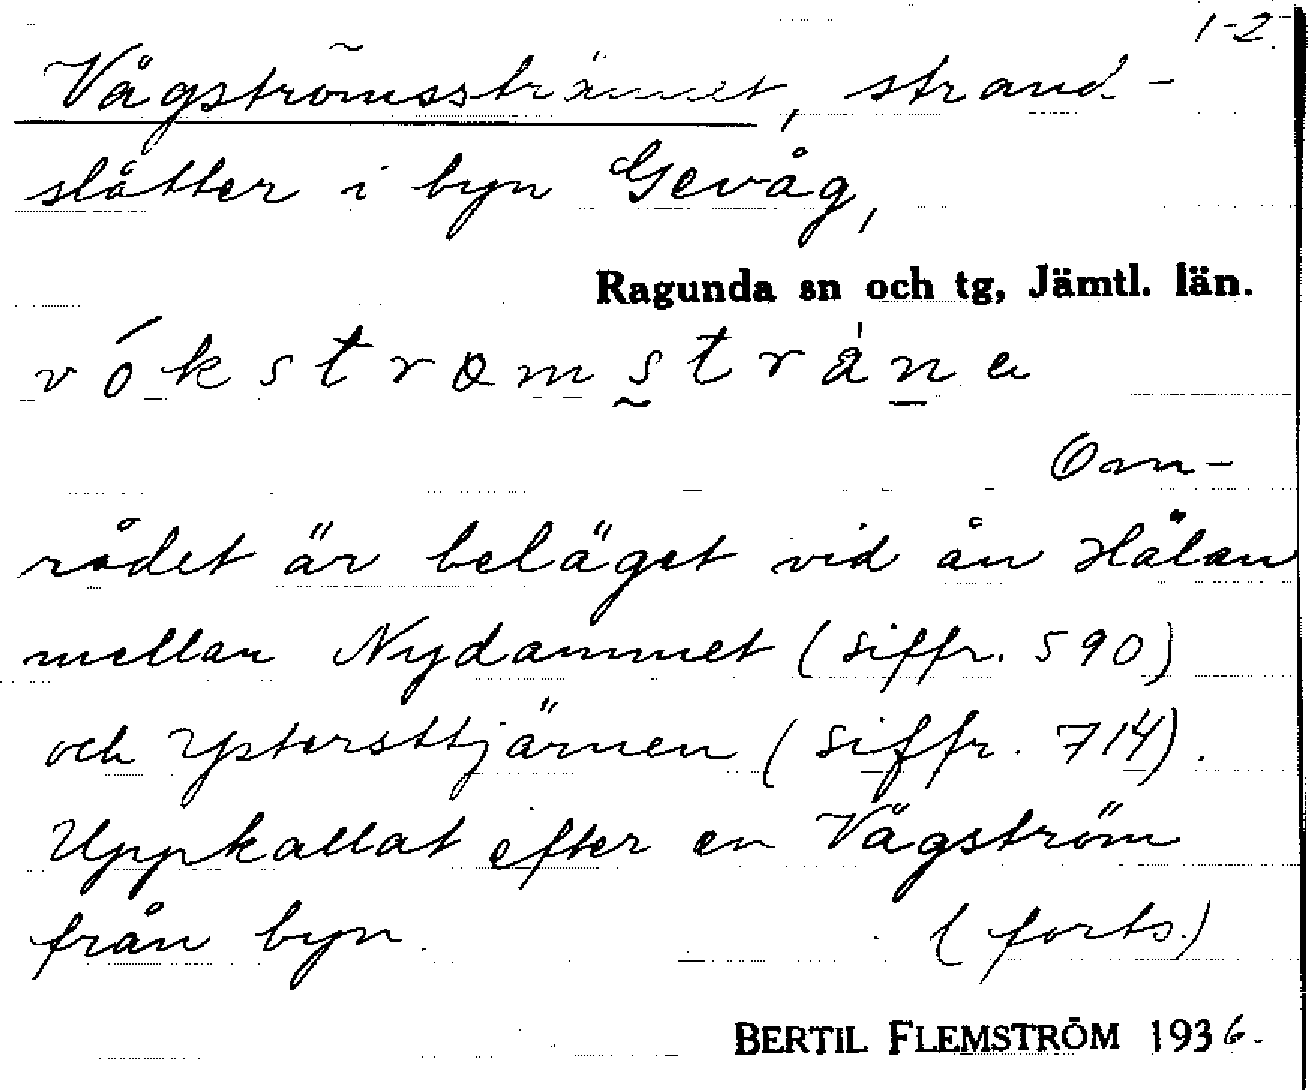 1-2.
Vågströmssträmmet, strand-
slåtter i byn Gevåg,
Ragunda sn och tg, Jämtl. län.
Om-
rådet är beläget vid ån Hålan
mellan Nydammet (siffr. 590)
och YpterSttjärnen (siffr. 714).
Uppkallat efter en Vågström
från byn. (forts.)
BERTIL FLEMSTRÖM 1936.